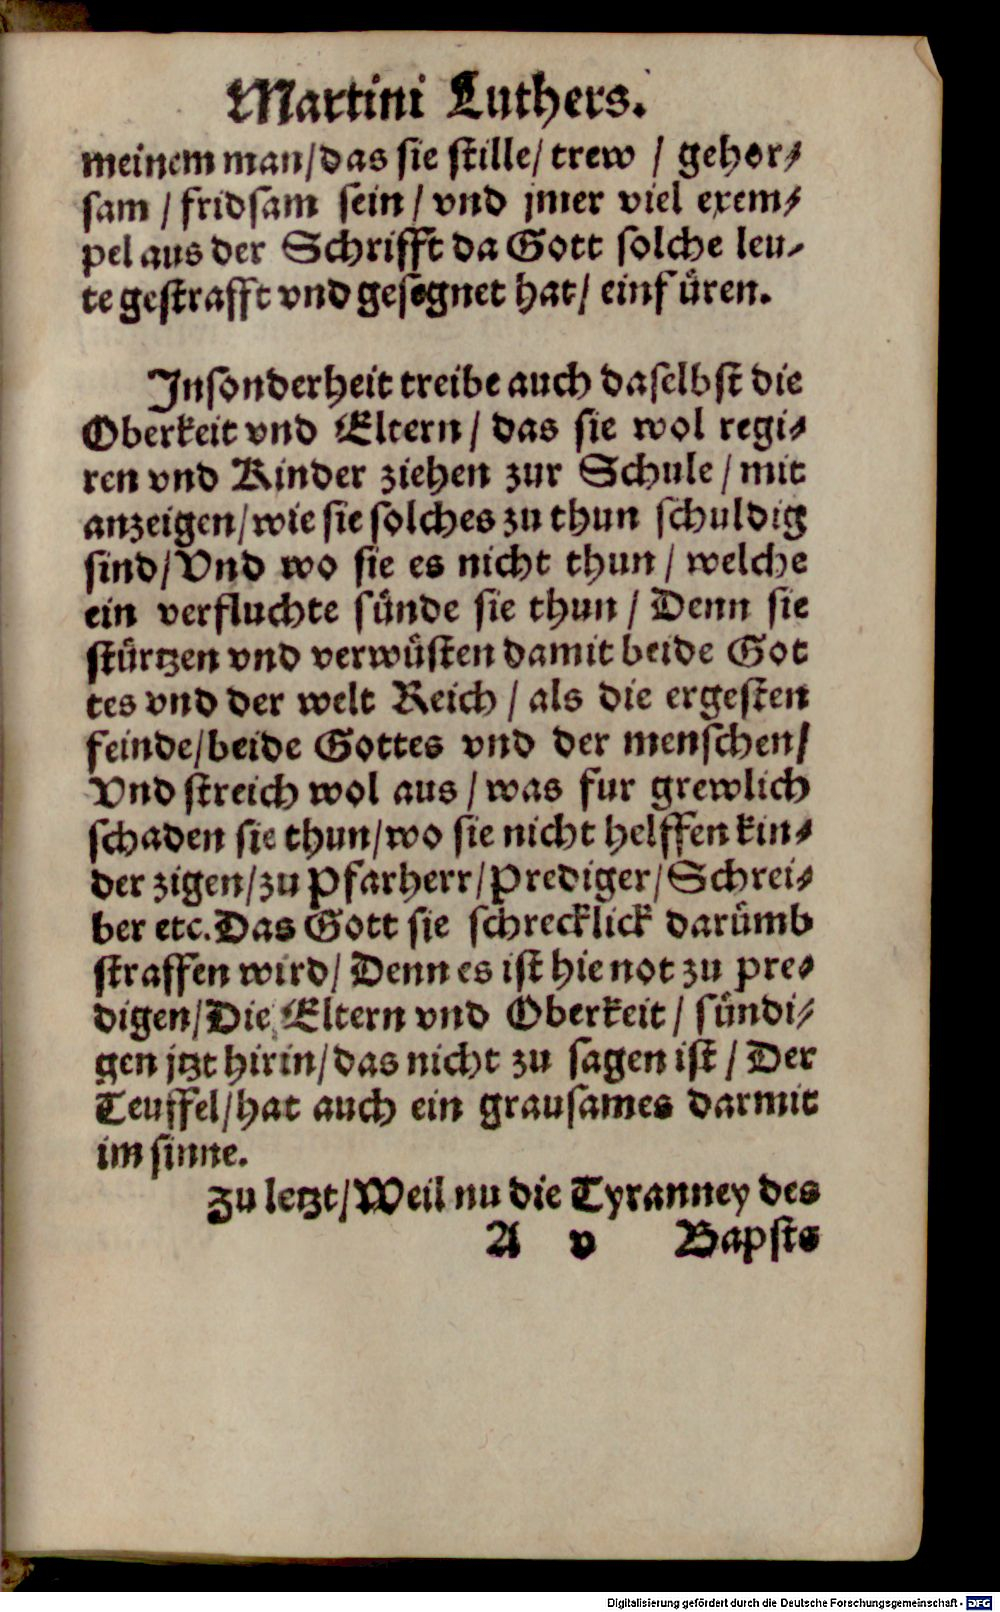 Martini Luthers.
meinem man/das sie stille/ trew / gehor⸗
sam / fridsam sein / vnd jmer viel exem⸗
pel aus der Schrifft da Gott solche leu⸗
te gestrafft vnd gesegnet hat/ einfüren.
Jnsonderheit treibe auch daselbst die
Oberkeit vnd Eltern / das sie wol regi⸗
ren vnd Kinder ziehen zur Schule / mit
anzeigen/wie sie solches zu thun schuldig
sind/Vnd wo sie es nicht thun / welche
ein verfluchte sünde sie thun / Denn sie
stürtzen vnd verwüsten damit beide Got
tes vnd der welt Reich / als die ergesten
feinde/beide Gottes vnd der menschen/
Vnd streich wol aus / was fur grewlich
schaden sie thun/wo sie nicht helffen kin⸗
der zigen/zu Pfarherr/Prediger/Schrei⸗
ber etc.Das Gott sie schrecklick darümb
straffen wird/ Denn es ist hie not zu pre⸗
digen/Die Eltern vnd Oberkeit / sündi⸗
gen jtzt hirin/das nicht zu sagen ist / Der
Teuffel/hat auch ein grausames darmit
im sinne.
Zu letzt/Weil nu die Tyranney des
A v Bapsts
Digitalisierung gefördert durch die Deutsche Forschungsgemeinschaft - DFG